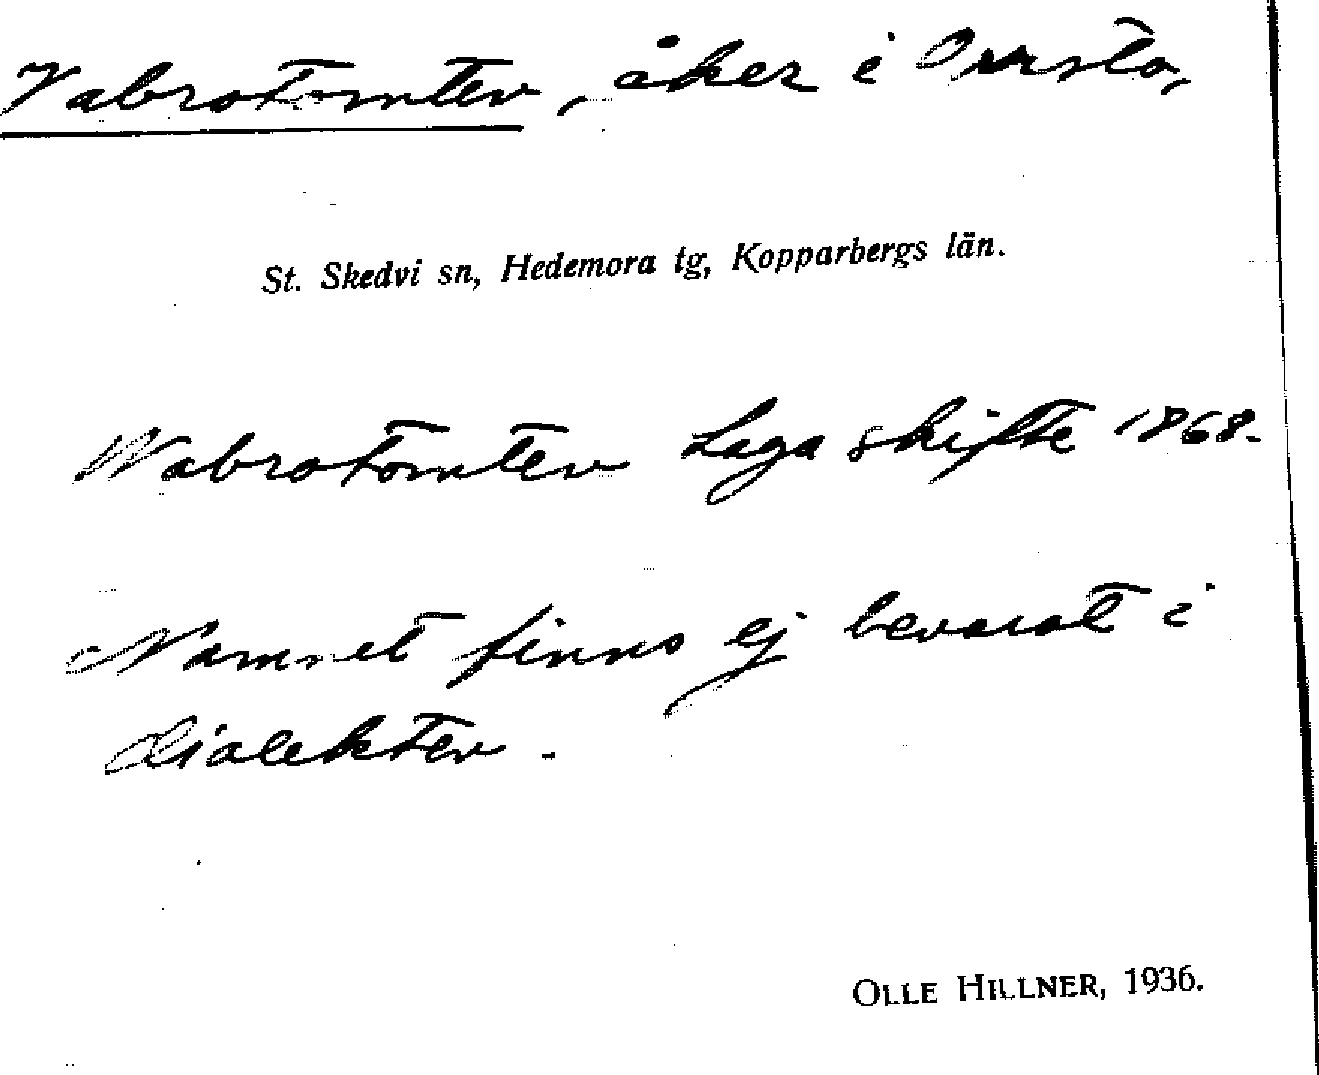 Vabrotomten, åker i
St. Skedvi sn, Hedemora tg, Kopparbergs län.
Wabrotomten Laga skifte 1868.
Namnet finns ej bevarat i
dialekten.
OLLE HILLNER, 1936.